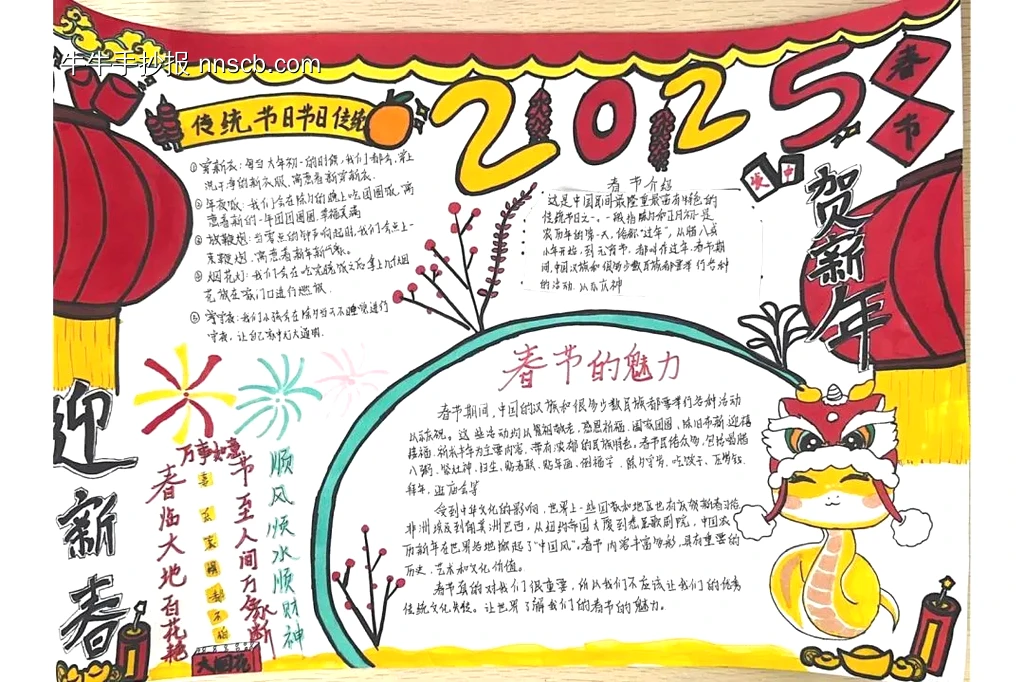 牛牛手抄报 nnscb.com
2025
春节
传统节日节日传统
①穿新衣：每当大年初一的时候，我们都会穿上
洗干净的新衣服，寓意着新穿新衣。
②年夜饭：我们会在除夕的晚上吃团圆饭，寓
意着新的一年团团圆圆，幸福美满
放鞭炮：当零点的钟声响起时，我们会点上一
寓意着新年新气象。
④烟花灯：我们会在吃完晚饭之后拿上几付烟
花放在家门口进行燃放。
⑤守夜：我们小孩会在除夕当天不睡觉进行
守夜，让自己
春节介绍
这是中国民间最隆重最富有特色的
传统节日之一。一般指除夕和正月初一是
农历年的第一天，俗称“过年”。从腊八或
小年开始，到元宵节，都叫在过年。春节期
间，中国汉族和很多少数民族都要举行各种
的活动以示庆祝
贺新年
春节的魅力
春节期间，中国的汉族和很多少数民族都要举行各种活动
以示庆祝。这些活动均以祭祖敬老、感恩祈福、阖家团圆、除旧布新、迎禧
接福、祈求丰年为主要内容，带有浓郁的民族特色。春节民俗众多，包括喝腊
八粥、祭灶神、扫尘、贴春联、贴年画、倒福字、除夕守岁、吃饺子、压岁钱、
拜年、逛庙会等
受到中华文化的影响，世界上一些国家和地区也有庆贺新春习俗
非洲埃及到南美洲巴西，从纽约帝国大厦到悉尼歌剧院，中国农
历新年在世界各地掀起了“中国风”。春节内容丰富多彩，具有重要的
历史、艺术和文化价值。
春节真的对我们很重要，所以我们不应该让我们的优秀
传统文化失传。让世界了解我们的春节的魅力。
迎新春
万事如意
春临大地百花艳
节至人间万象新
顺风顺水顺财神